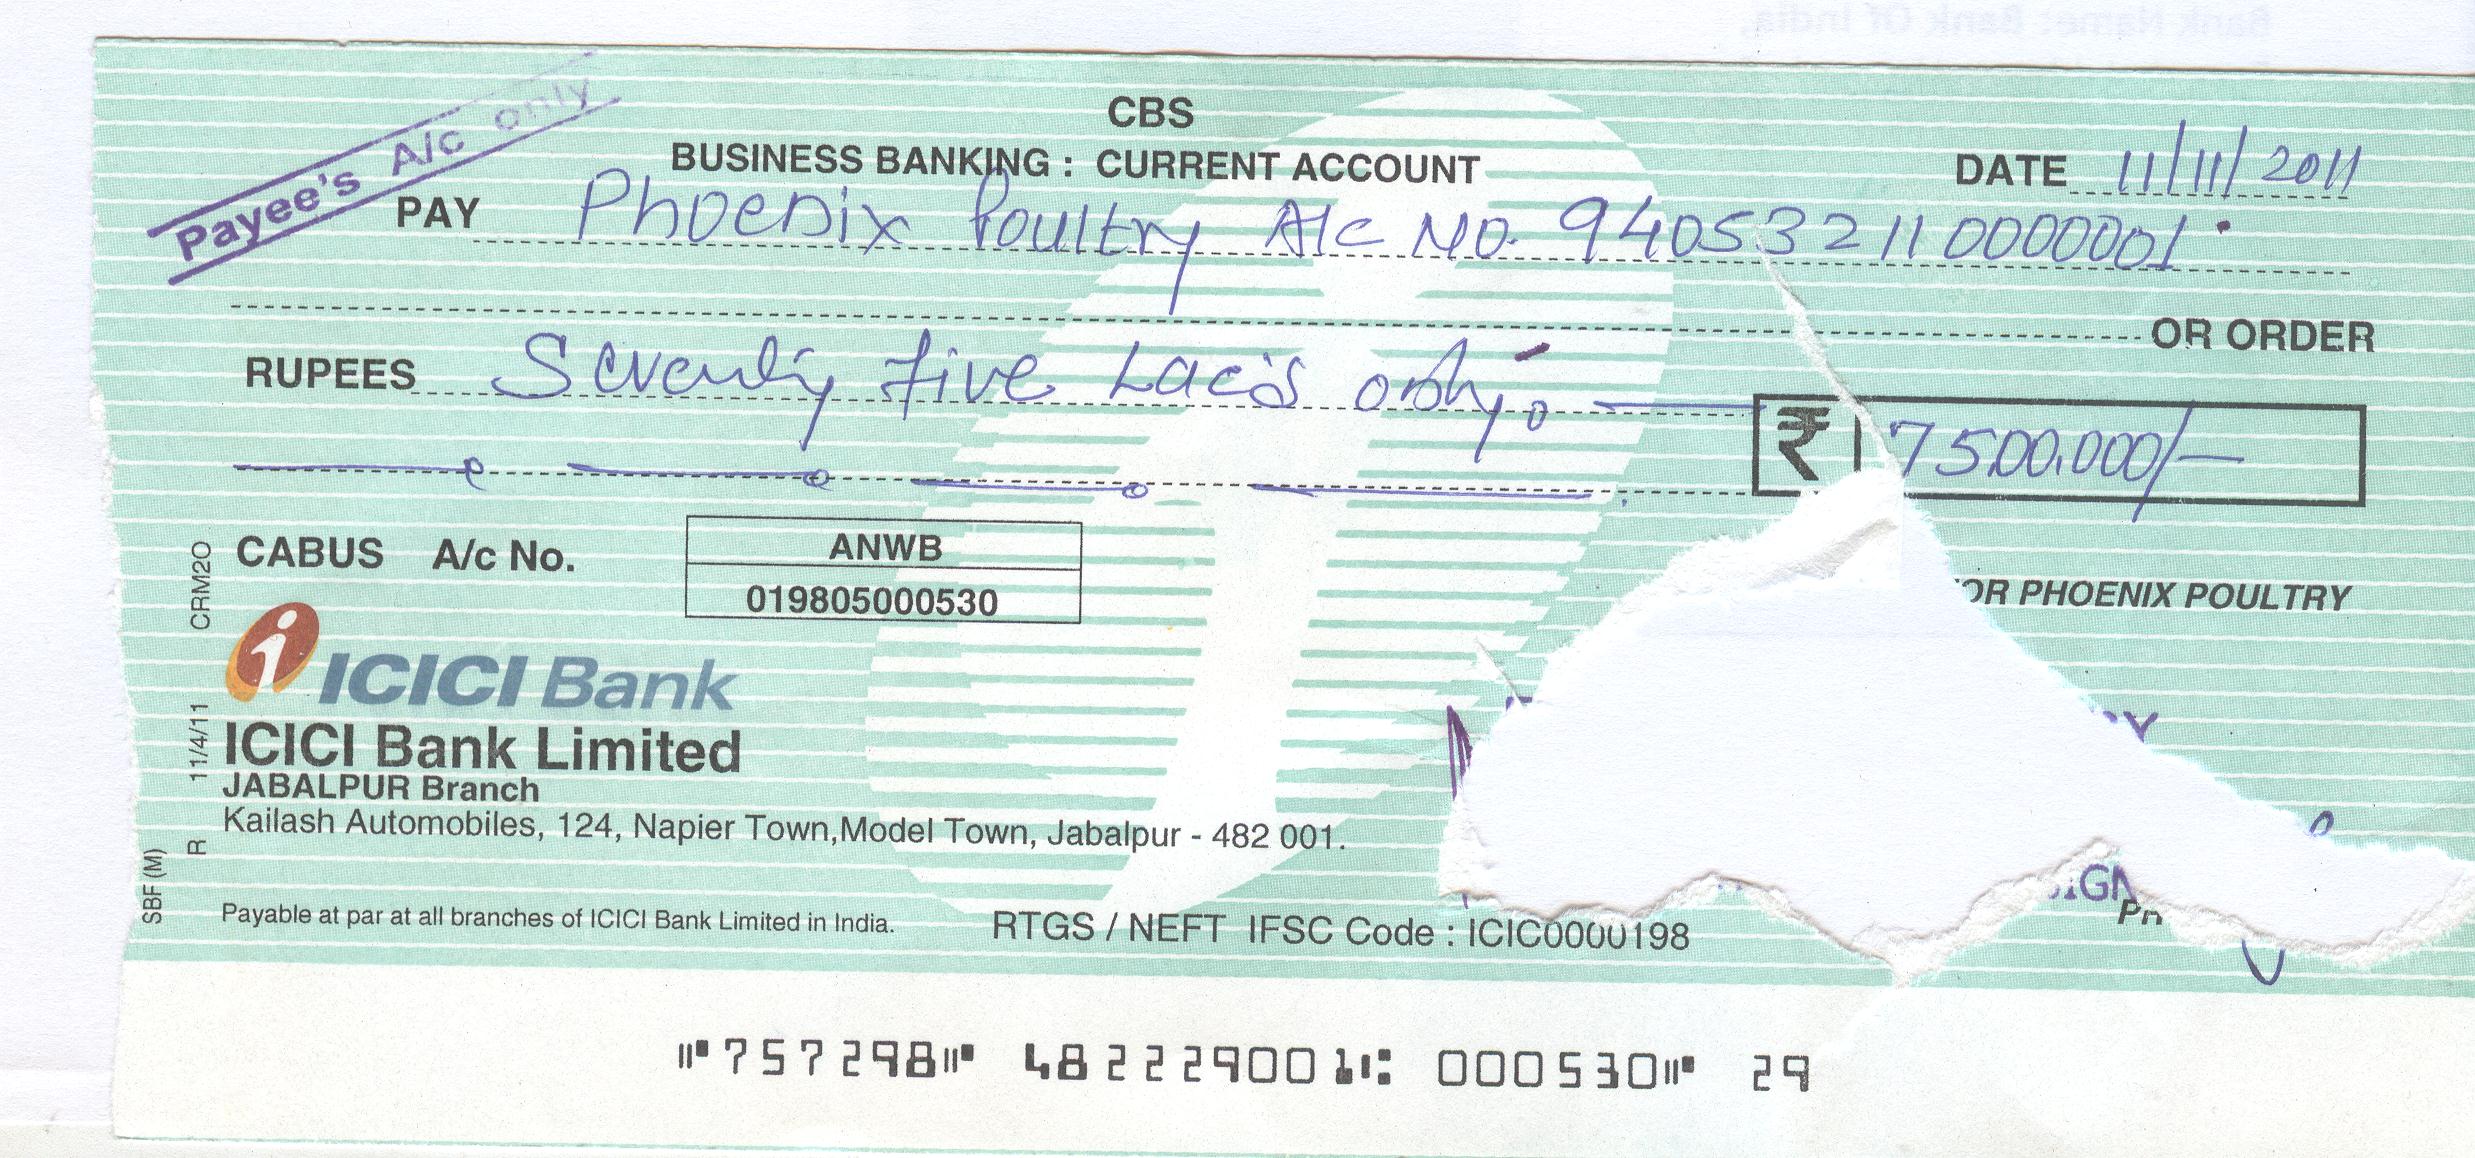 Bank Name: Bank Of India.
Payee's A/c only
CBS
BUSINESS BANKING : CURRENT ACCOUNT
DATE 11/11/2011
PAY Phoenix Poultry A/c No. 940532110000001
OR ORDER
RUPEES Seventy five Lac's only.
₹ 7500.000/-
CABUS A/c No.
ANWB
019805000530
OR PHOENIX POULTRY
CRM2O
ICICI Bank
ICICI Bank Limited
JABALPUR Branch
Kailash Automobiles, 124, Napier Town,Model Town, Jabalpur - 482 001.
R 11/4/11
SBF (M)
Payable at par at all branches of ICICI Bank Limited in India.
RTGS / NEFT IFSC Code : ICIC0000198
⑈757298⑈ 482229001⑆ 000530⑈ 29